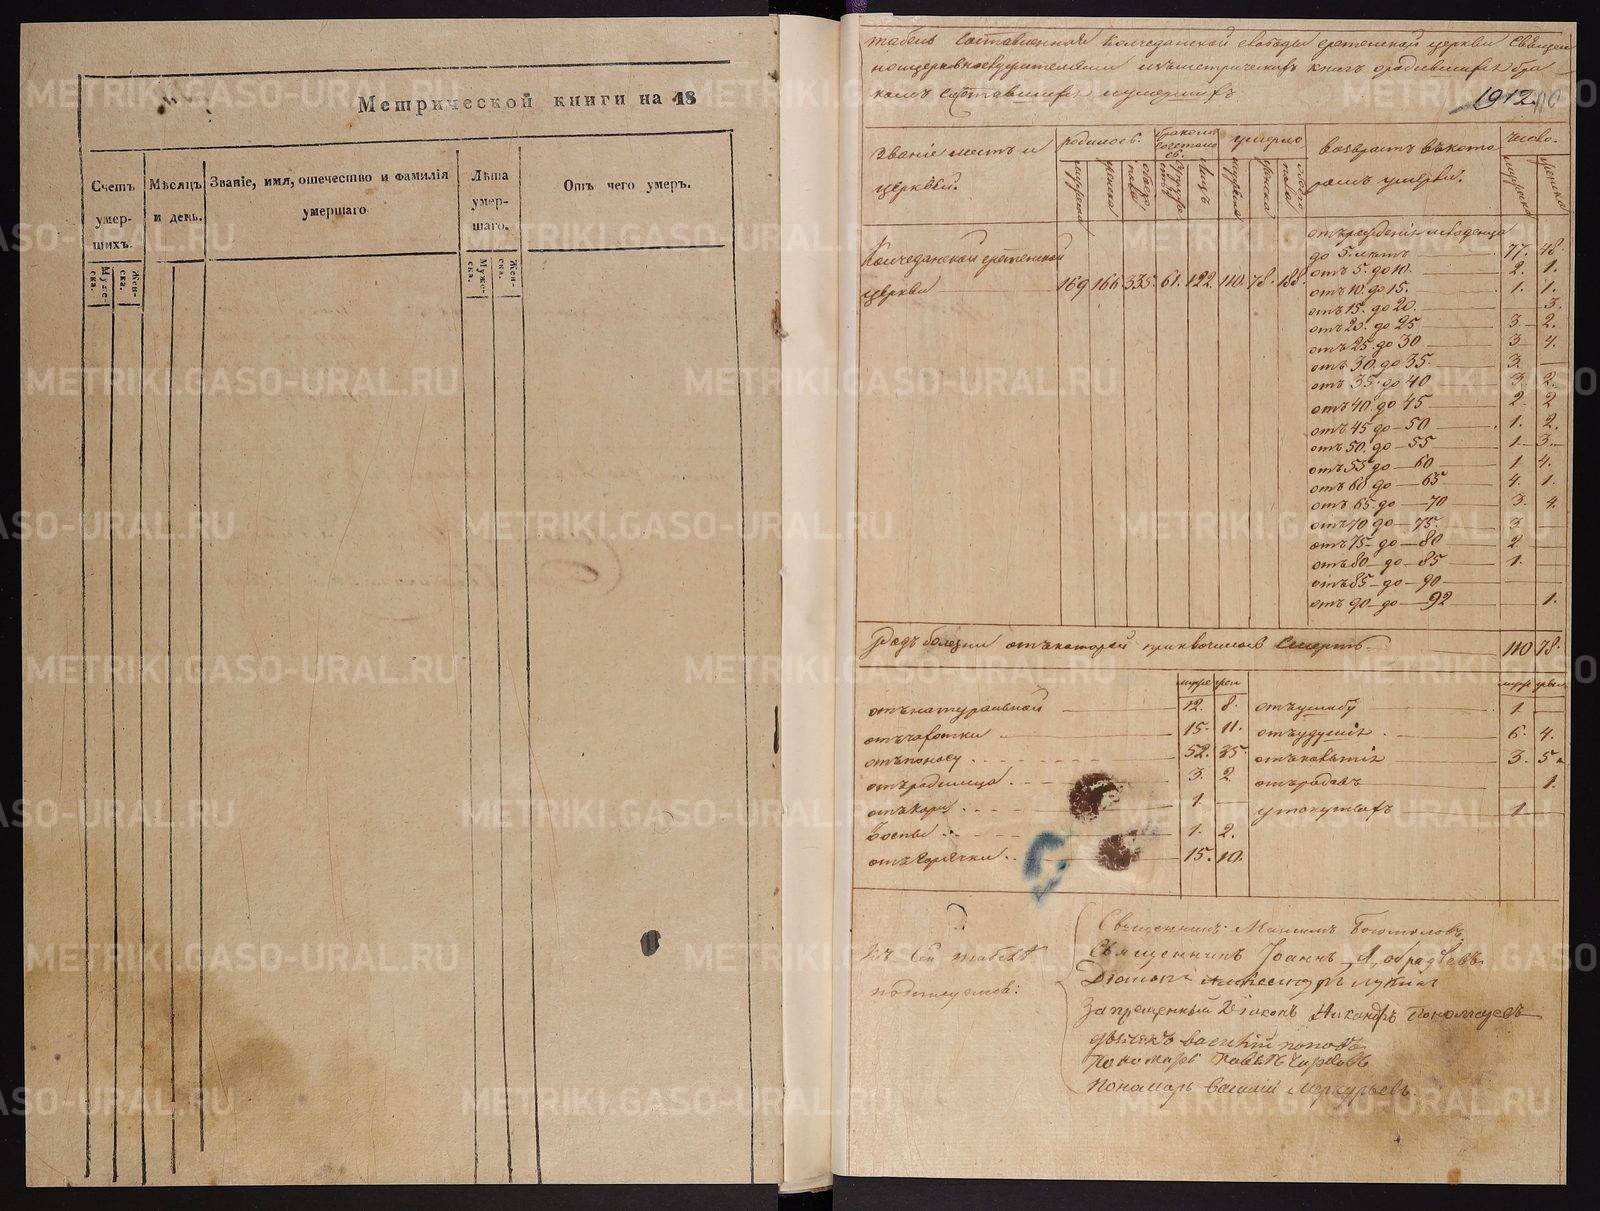 Метрической книги на 18
Счетъ умер- шихъ.
Муже- ска.
Жен- ска.
Мѣсяцъ и день.
Званіе, имя, отечество и фамилія умершаго
Лѣта умер- шаго.
Муже- ска.
Жен- ска.
Отъ чего умеръ.
табель составленная Колчеданской слободы сретенской церкви священ
ноцерковнослужителями изъметрическихъ книгъ ородившихся бра
комъ сочетавшихся иумершихъ
1912.
Званіе местъ и церквей.
родилось.
мужеска
женска
обоего пола
бракомъ сочетало сь.
супруже ствъ
лицъ
умерло
мужеска
женска
обоего пола
возврастъ въкото ромъ умерли.
число.
мужеска
женска
Колчеданской сретенской
церкви 169 166. 335. 61. 122. 110. 78. 188.
отърожденія младенца
до 5. летъ 77. 48.
отъ 5. до 10. 2. 1.
отъ 10. до 15. 1. 1.
отъ 15. до 20. 3.
отъ 20. до 25 3. 2.
отъ 25. до 30 3 4.
отъ 30. до 35. 3.
отъ 35. до 40 3. 2.
отъ 40. до 45 2. 2
отъ 45 до 50 1. 2.
отъ 50. до 55 1 3.
отъ 55 до 60 1 4.
отъ 60 до 65 4. 1.
отъ 65. до 70 3. 4.
отъ 70 до 75. 3.
отъ 75 до 80 2
отъ 80 до 85 1.
отъ 85 до 90
отъ 90 до 92 1.
Родъ болезни отъкоторой приключилась Смерть 110 78.
муже жен муже жен
отънатуральной 12. 8. отъушибу 1.
отъчахотки 15. 11. отъудушія 6. 4.
отъпоносу 52. 35. 3. 5.
отъродимца 3. 2. отъродовъ 1.
отъкори 1. утонувшихъ 1
воспы 1. 2.
отъгорячки 15. 10.
Къ сей табелѣ
подписуемся:
Священникъ Максимъ Богомоловъ
Священникъ Іоаннъ
Діаконъ Александръ Лукинъ
Запрещенный Діаконъ Никандръ Пономаревъ
дьячекъ василій поповъ
Пономарь
Пономарь Василій Меркурьевъ
METRIKI.GASO-URAL.RU